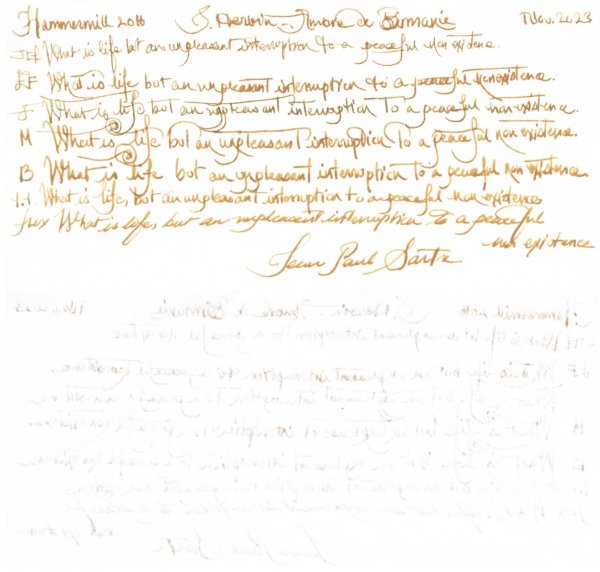 Hammermill 20lb J. Herbin - Ambre de Birmanie Nov. 2023
JEF What is life but an unpleasant interruption to a peaceful non existence.
EF What is life but an unpleasant interruption to a peaceful nonexistence.
F What is life but an unpleasant interruption to a peaceful non existence.
M What is life but an unpleasant interruption to a peaceful non existence.
B What is life but an unpleasant interruption to a peaceful non existence
1.1. What is life, but an unpleasant interruption to a peaceful non existence
fux What is life, but an unpleasant interruption to a peaceful
non existence
Jean Paul Sartre